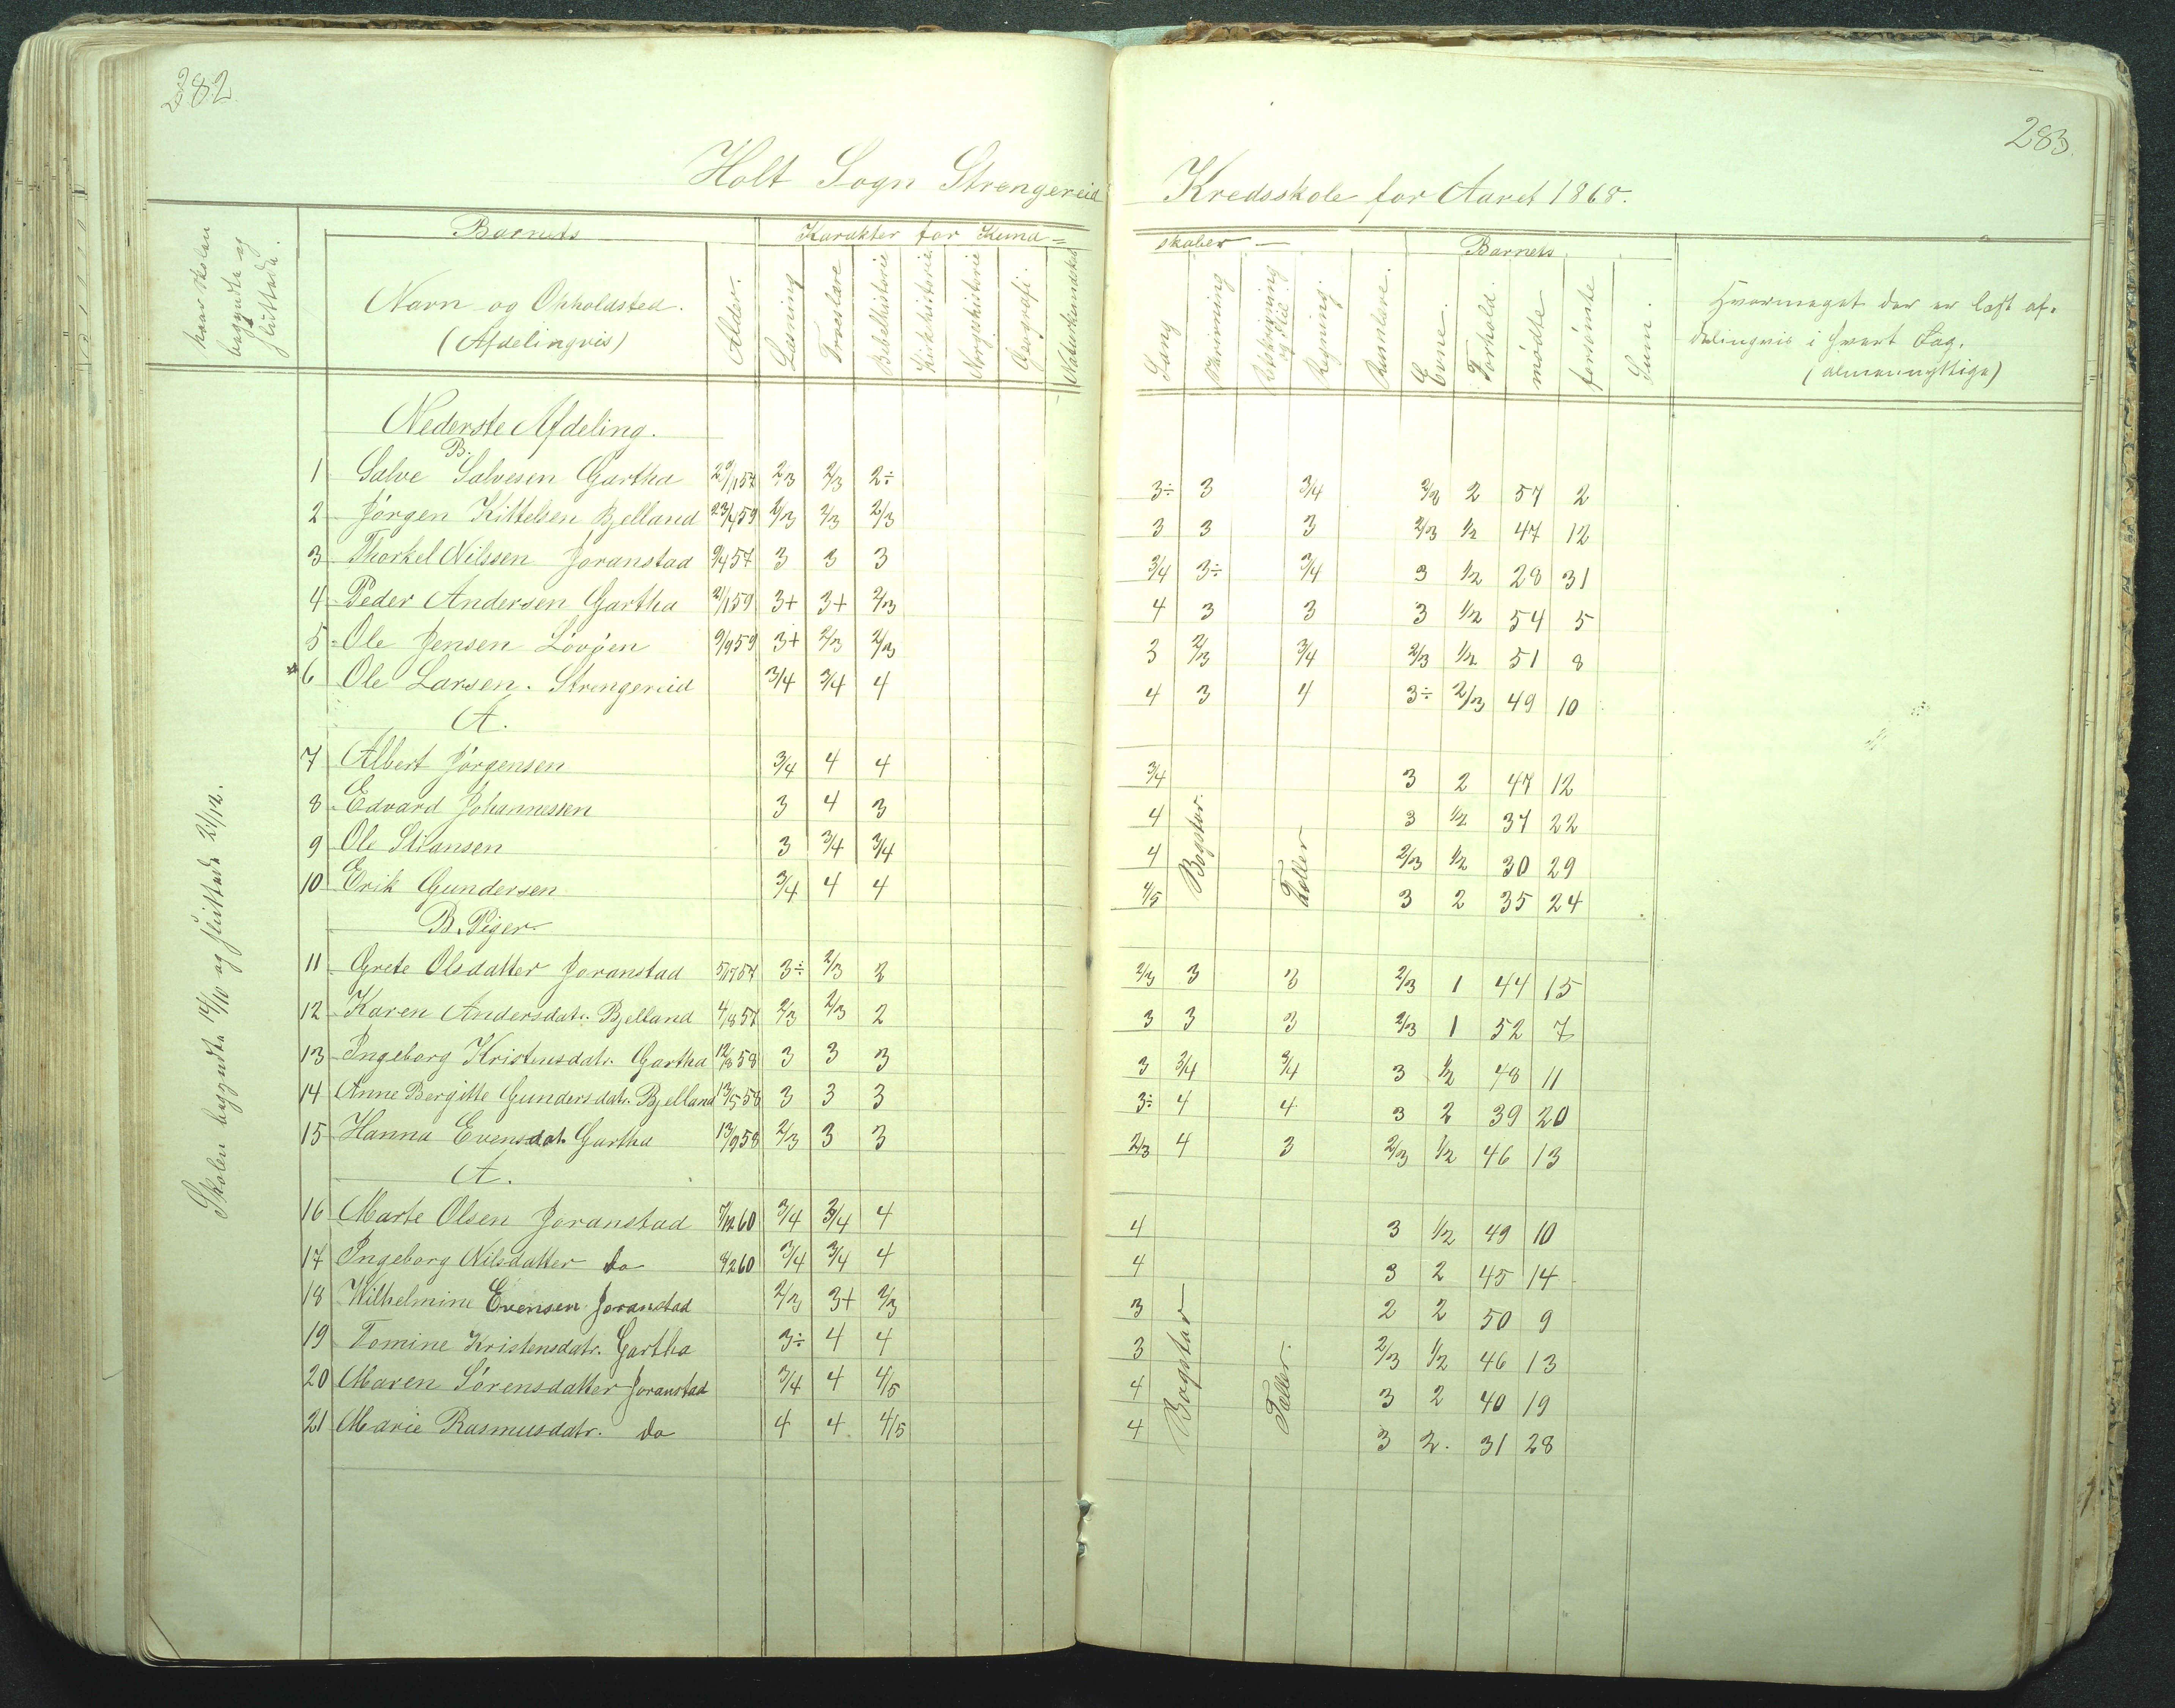 282
283.
Holt Sogn Strengereid Kredsskole for Aaret 1868.
naar Skolen begyndte og sluttede.
Barnets
Navn og Opholdsted. (Afdelingvis)
Alder.
Karakter for Kund=
Læsning
Troeslære
Bibelhistorie
Kirkehistorie
Norgeshistorie
Geografi.
Naturkundskab
skaber —
Sang
Skrivning
Regning.
Barnets
Evne.
Forhold.
mödte
forsömte
Sum.
Hvormeget der er læst af-
delingvis i hvert Fag.
(almennyttige)
Skolen begyndte 14/10 og sluttede 21/12.
Nederste Afdeling.
B.
1 Salve Salvesen Gartha 29/1 57 2/3 2/3 2÷ 3÷ 3 3/4 2/3 2 57 2
2 Jörgen Kittelsen Bjelland 23/4 59 2/3 2/3 2/3 3 3 3 2/3 1/2 47 12
3 Thorkel Nilssen Joranstad 9/4 57 3 3 3 3/4 3÷ 3/4 3 1/2 28 31
4 Peder Andersen Gartha 21/1 59 3+ 3+ 2/3 4 3 3 3 1/2 54 5
5 Ole Jensen Lövöen 9/9 59 3+ 2/3 2/3 3 2/3 3/4 2/3 1/2 51 8
6 Ole Larsen. Strengereid 3/4 3/4 4 4 3 4 3÷ 2/3 49 10
A.
7 Albert Jörgensen 3/4 4 4 3/4 3 2 47 12
8 Edvard Johannessen 3 4 3 4 3 1/2 37 22
9 Ole 3 3/4 3/4 4 2/3 1/2 30 29
10 Erik Gundersen 3/4 4 4 4/5 3 2 35 24
Bogstav.
Tæller
B. Piger
11 Grete Olsdatter Joranstad 5/7 57 3÷ 2/3 2 2/3 3 3 2/3 1 44 15
12 Karen Andersdatr. Bjelland 4/8 57 2/3 2/3 2 3 3 3 2/3 1 52 7
13 Ingeborg Kristensdatr. Gartha 12/8 58 3 3 3 3 3/4 3/4 3 1/2 48 11
14 Anne Bergitte Gundersdatr. Bjelland 13/5 58 3 3 3 3÷ 4 4 3 2 39 20
15 Hanna Evensdat. Gartha 13/9 58 2/3 3 3 2/3 4 3 2/3 1/2 46 13
A.
16 Marte Olsen Joranstad 7/12 60 3/4 3/4 4 4 3 1/2 49 10
17 Ingeborg Nilsdatter do 8/2 60 3/4 3/4 4 4 3 2 45 14
18 Wilhelmine Evensen Joranstad 2/3 3+ 2/3 3 2 2 50 9
19 Tomine Kristensdatr. Gartha 3÷ 4 4 3 2/3 1/2 46 13
20 Maren Sörensdatter Joranstad 3/4 4 4/5 4 3 2 40 19
21 Marie Rasmusdatr. do 4 4 4/5 4 3 2. 31 28
Bogstav
Tæller.